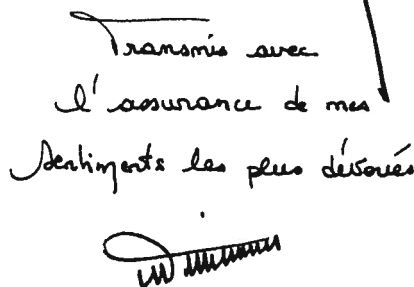 Transmis avec
l'assurance de mes
sentiments les plus dévoués